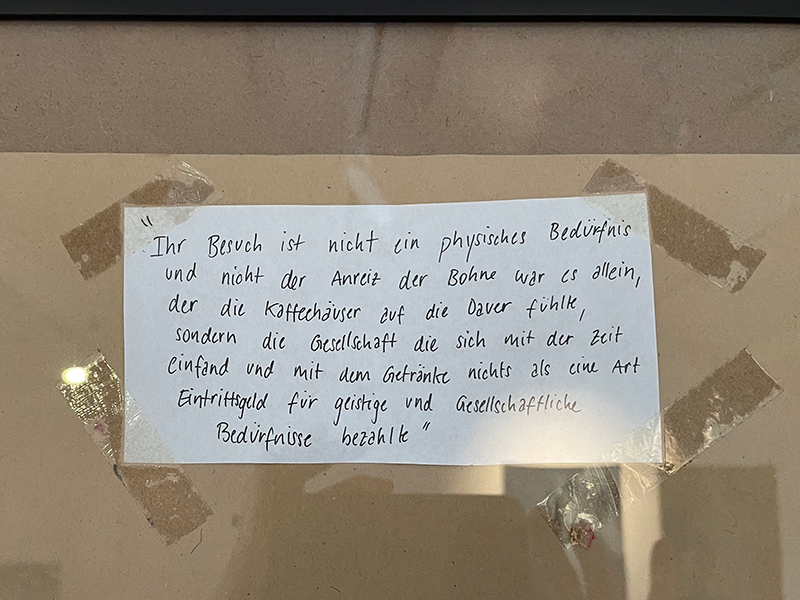 "Ihr Besuch ist nicht ein physisches Bedürfnis
und nicht der Anreiz der Bohne war es allein,
der die Kaffeehäuser auf die Dauer fühlte,
sondern die Gesellschaft die sich mit der Zeit
einfand und mit dem Getränke nichts als eine Art
Eintrittsgeld für geistige und Gesellschaftliche
Bedürfnisse bezahlte"